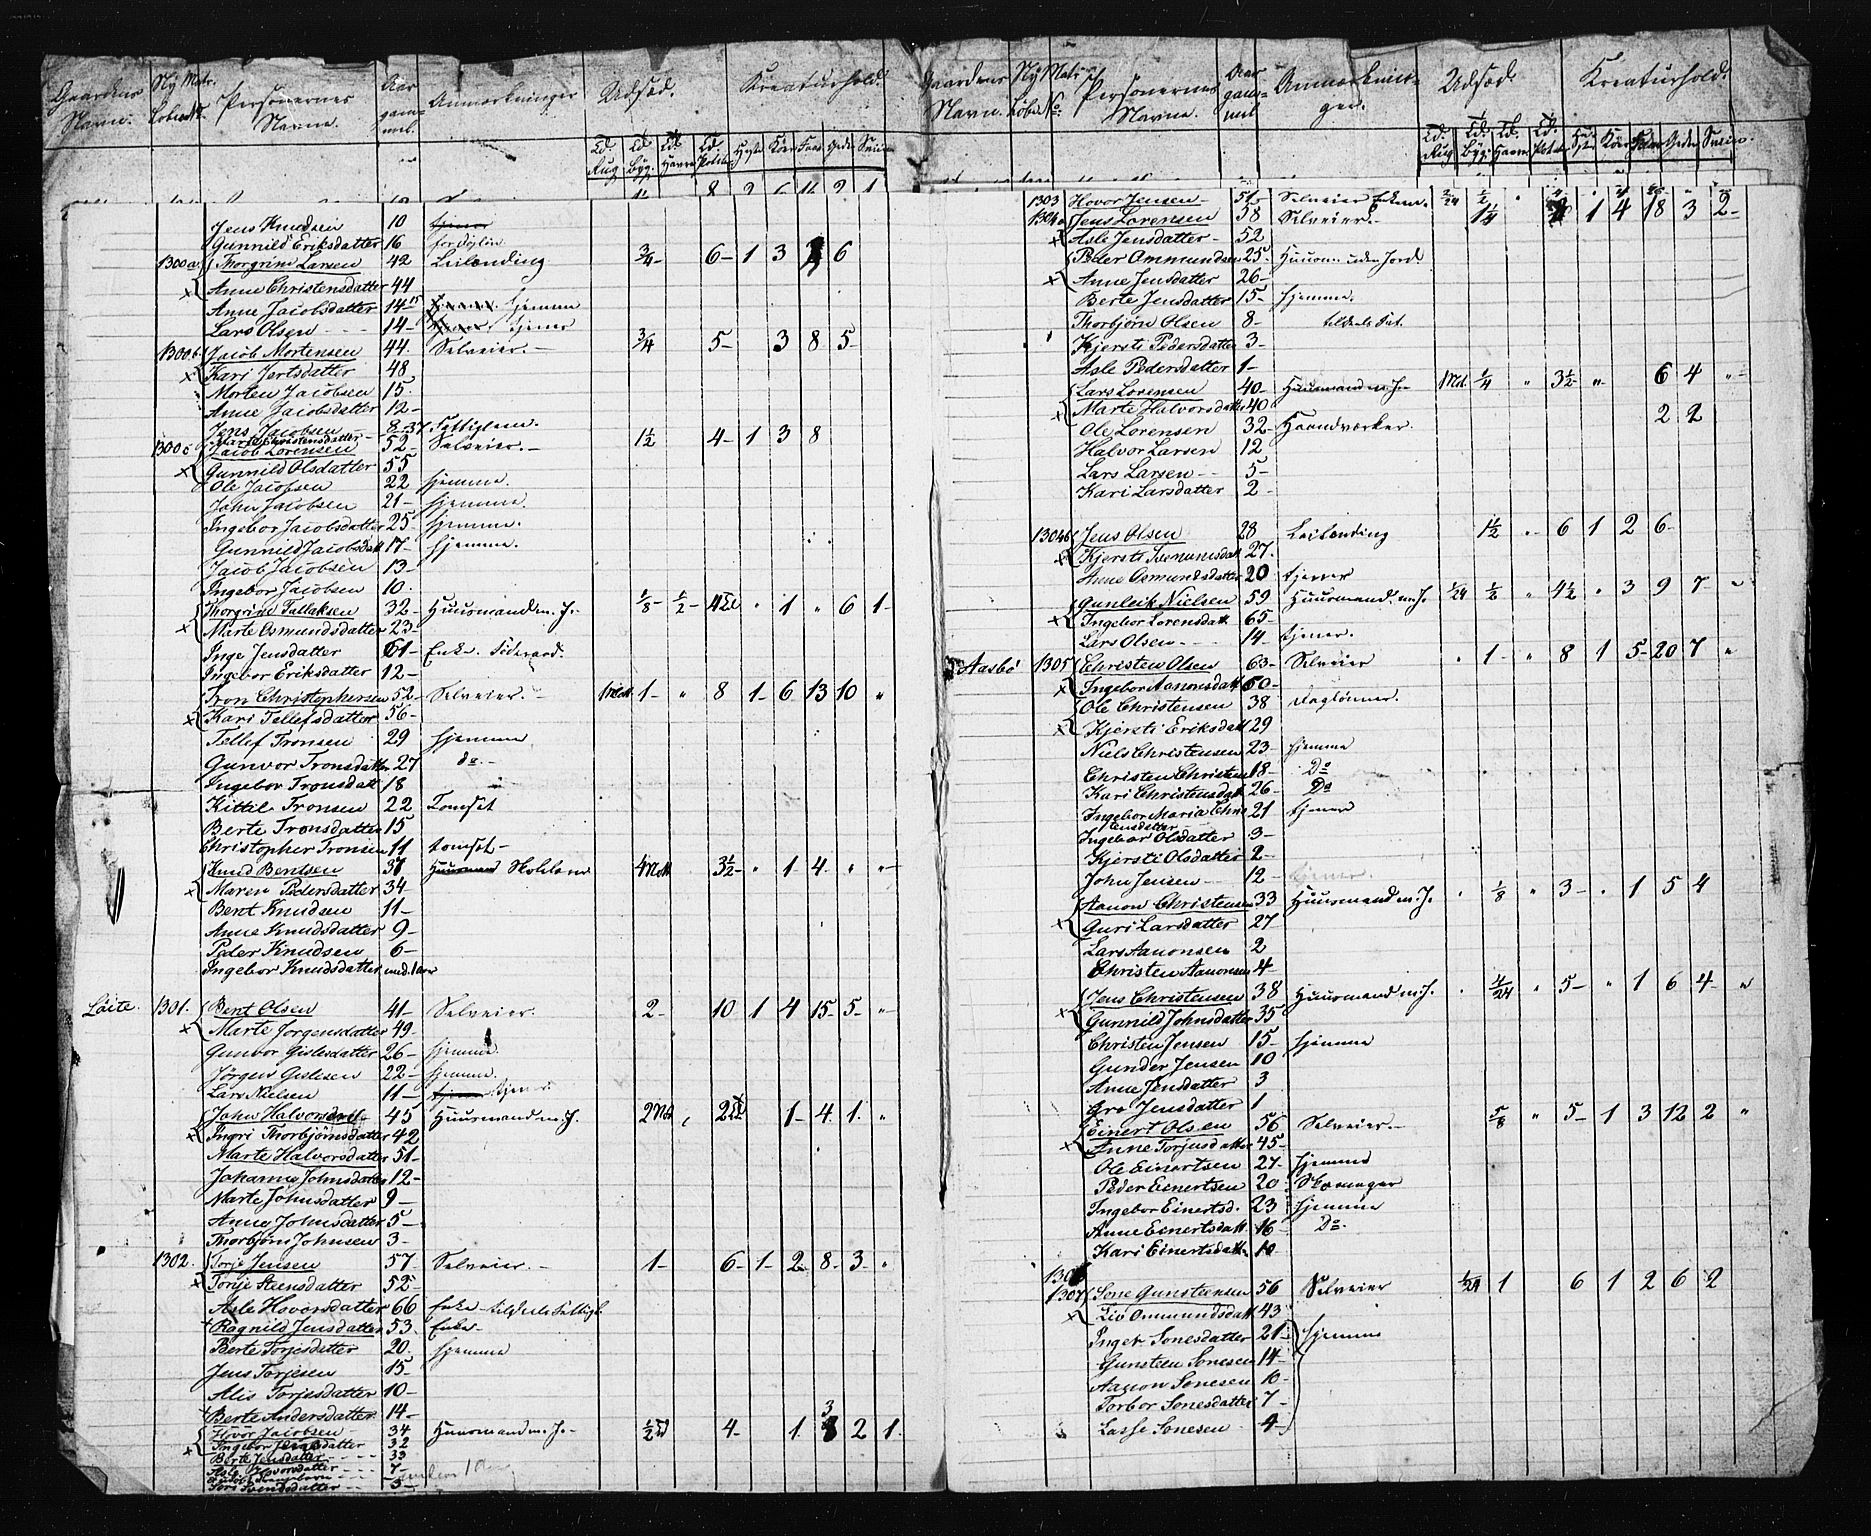 Gaardens Navn. Ny Matr. Løbe No. Personernes Navne. Aar gammel. Anmærkninger Udsæd. Kreaturhold.
Td. Rug Td. Byg. Td. Havre Td. Poteter Heste Køer Faar Geder Sviin
Jens Knudsen 10
Gunnild Eriksdatter 16
1300a Thorgrim Larsen 42 Leilending 3/4 6 1 3 6
Anne Christensdatter 44
Anne Jacobsdatter 14 hjemme
Lars Olsen 14 tjener
1300b Jacob Mortensen 44 Selveier. 3/4 5 3 8 5
Kari Jertsdatter 48
Morten Jacobsen 15
Anne Jacobsdatter 12
Jens Jacobsen 8
Marte Christensdatter 37 Fattiglem.
1300c Jacob Lorensen 52 Selveier. 1½ 4 1 3 8
Gunnild Olsdatter 55
Ole Jacobsen 22 hjemme.
John Jacobsen 21 hjemme.
Ingebor Jacobsdatter 25 hjemme.
Gunnild Jacobsdatt 17 hjemme.
Jacob Jacobsen 13
Ingebor Jacobsen 10
Thorgrim Tallaksen 32 Huusmand m. J. 1/8 1/2 4½ " 1 " 6 1
Marte Osmundsdatter 23
Inge Jensdatter 61 Enke. Føderaad.
Ingebor Eriksdatter 12
Tron Christophersen 52 Selveier. 1 " 8 1 6 13 10 "
Kari Tellefsdatter 56
Tellef Tronsen 29 hjemme
Gunvor Tronsdatter 27 do.
Ingebor Tronsdatt 18
Kittil Tronsen 22 Tomset
Berte Tronsdatter 15
Christopher Tronsen 11 tomset
Knud Bentsen 37 Huusmand Skolelærer 4 Mett 3½ " 1 4 " "
Maren Pedersdatter 34
Bent Knudsen 11
Anne Knudsdatter 9
Peder Knudsen 6
Ingebor Knudsdatter und. 1 aar
Løite. 1301. Bent Olsen 41 Selveier. 2 10 1 4 15 5 "
Marte Jørgensdatter 49
Gunvor Gislesdatter 26 hjemme
Jørgen Gislesen 22 hjemme.
Lars Nielsen 11 tjener
John Halvorsen 45 Huusmand m. J. 2 Mett 1 4 1 "
Ingri Thorbjørnsdatter 42
Marte Halvorsdatter 51
Johanne Johnsdatter 12
Marte Johnsdatter 9
Anne Johnsdatter 5
Thorbjørn Johnsen 3
1302. Torje Jensen 57 Selveier. 1 6 1 2 8 3 "
Torije Steensdatter 52
Asle Hovorsdatter 66 Enke
Ragnild Jensdatter 53 Enke
Berte Torjesdatter 20 hjemme
Jens Torjesen 15
Alis Torjesdatter 10
Berte Andersdatter 14
Hovor Jacobsen 34 Huusmand m. J. 4 1 2 1
Ingebor Jensdatter 32
Berte Jensdatter 33
Asle Hovorsdatter 7
under 1 Aar
Tori Svendsdatter 5
Gaardens Navn. Ny Matr. Løbe No. Personernes Navne. Aar gammel Anmærkninger. Udsæd. Kreaturhold.
Td. Rug Td. Byg. Td. Havre Td. Poteter Heste Køer Faar Geder Sviin.
1303 Hovor Jensen 51
1304a Jens Lorensen 58 Selveier. 1¼ 1 4 18 3 2
Asle Jensdatter 52
Peder Ommundsen 25 Huusm. uden Jord.
Anne Jensdatter 26
Berte Jensdatter 15 hjemme.
Thorbjørn Olsen 8
Kjersti Pedersdatter 3
Asle Pedersdatter 1
Lars Lorensen 40 Huusmand m. J. 1 Md. 1/4 " 3½ " 6 4 "
Marte Halvorsdatter 40 2 2
Ole Lorensen 32 Haandværker.
Halvor Larsen 12
Lars Larsen 5
Kari Larsdatter 2
1304b Jens Olsen 28 Leilending 1½ " 6 1 2 6
Kjersti Tsemunsdatt 27
Anne Osmundsdatter 20 tjener
Gunleik Nielsen 59 Huusmand. m. J. 1/24 1/2 " 4½ " 3 9 7 "
Ingebor Lorensdatt 65
Lars Olsen 14 tjener.
Aasbø 1305 Christen Olsen 63 Selveier " 1 " 8 1 5 20 7 "
Ingebor Aanonsdatt 60
Ole Christensen 38 Daglønner.
Kjersti Eriksdatt 29
Niels Christensen 23 hjemme
Christen Christens 18 Do
Kari Christensdatt 26 Do
Ingebor Maria Christensdatter 21 tjener
Ingebor Olsdatter 3
Kjersti Olsdatter 2
John Jensen 12 tjener.
Aanon Christensen 33 Huusmand m. J. " 1/8 " 3 " 1 5 4
Guri Larsdatter 27
Lars Aanonsen 2
Christen Aanonsen 4
Jens Christensen 38 Huusmand m. J. " 5 " 1 6 4 "
Gunnild Johnsdatter 35
Christen Jensen 15 hjemme
Gunder Jensen 10
Anne Jensdatter 3
Gro Jensdatter 1
Einert Olsen 56 Selveier. 5/8 " 5 1 3 12 2 "
Anne Torjusdatter 45
Ole Einertsen 27 hjemme
Peder Einertsen 20 Skomager
Ingebor Einertsd. 23 hjemme
Anne Einertsdatt. 16 Do.
Kari Einertsdatt. 10
1306
1307 Sone Gunsteensen 56 Selveier 1/24 1 6 1 2 6 2
Liv Ommundsdatt 43
Ingeb. Sonesdatter 21 hjemme
Gunsteen Sonesen 14
Aanon Sonesen 10
Torbor Sonesdatter 7
Lasse Sonesen 4